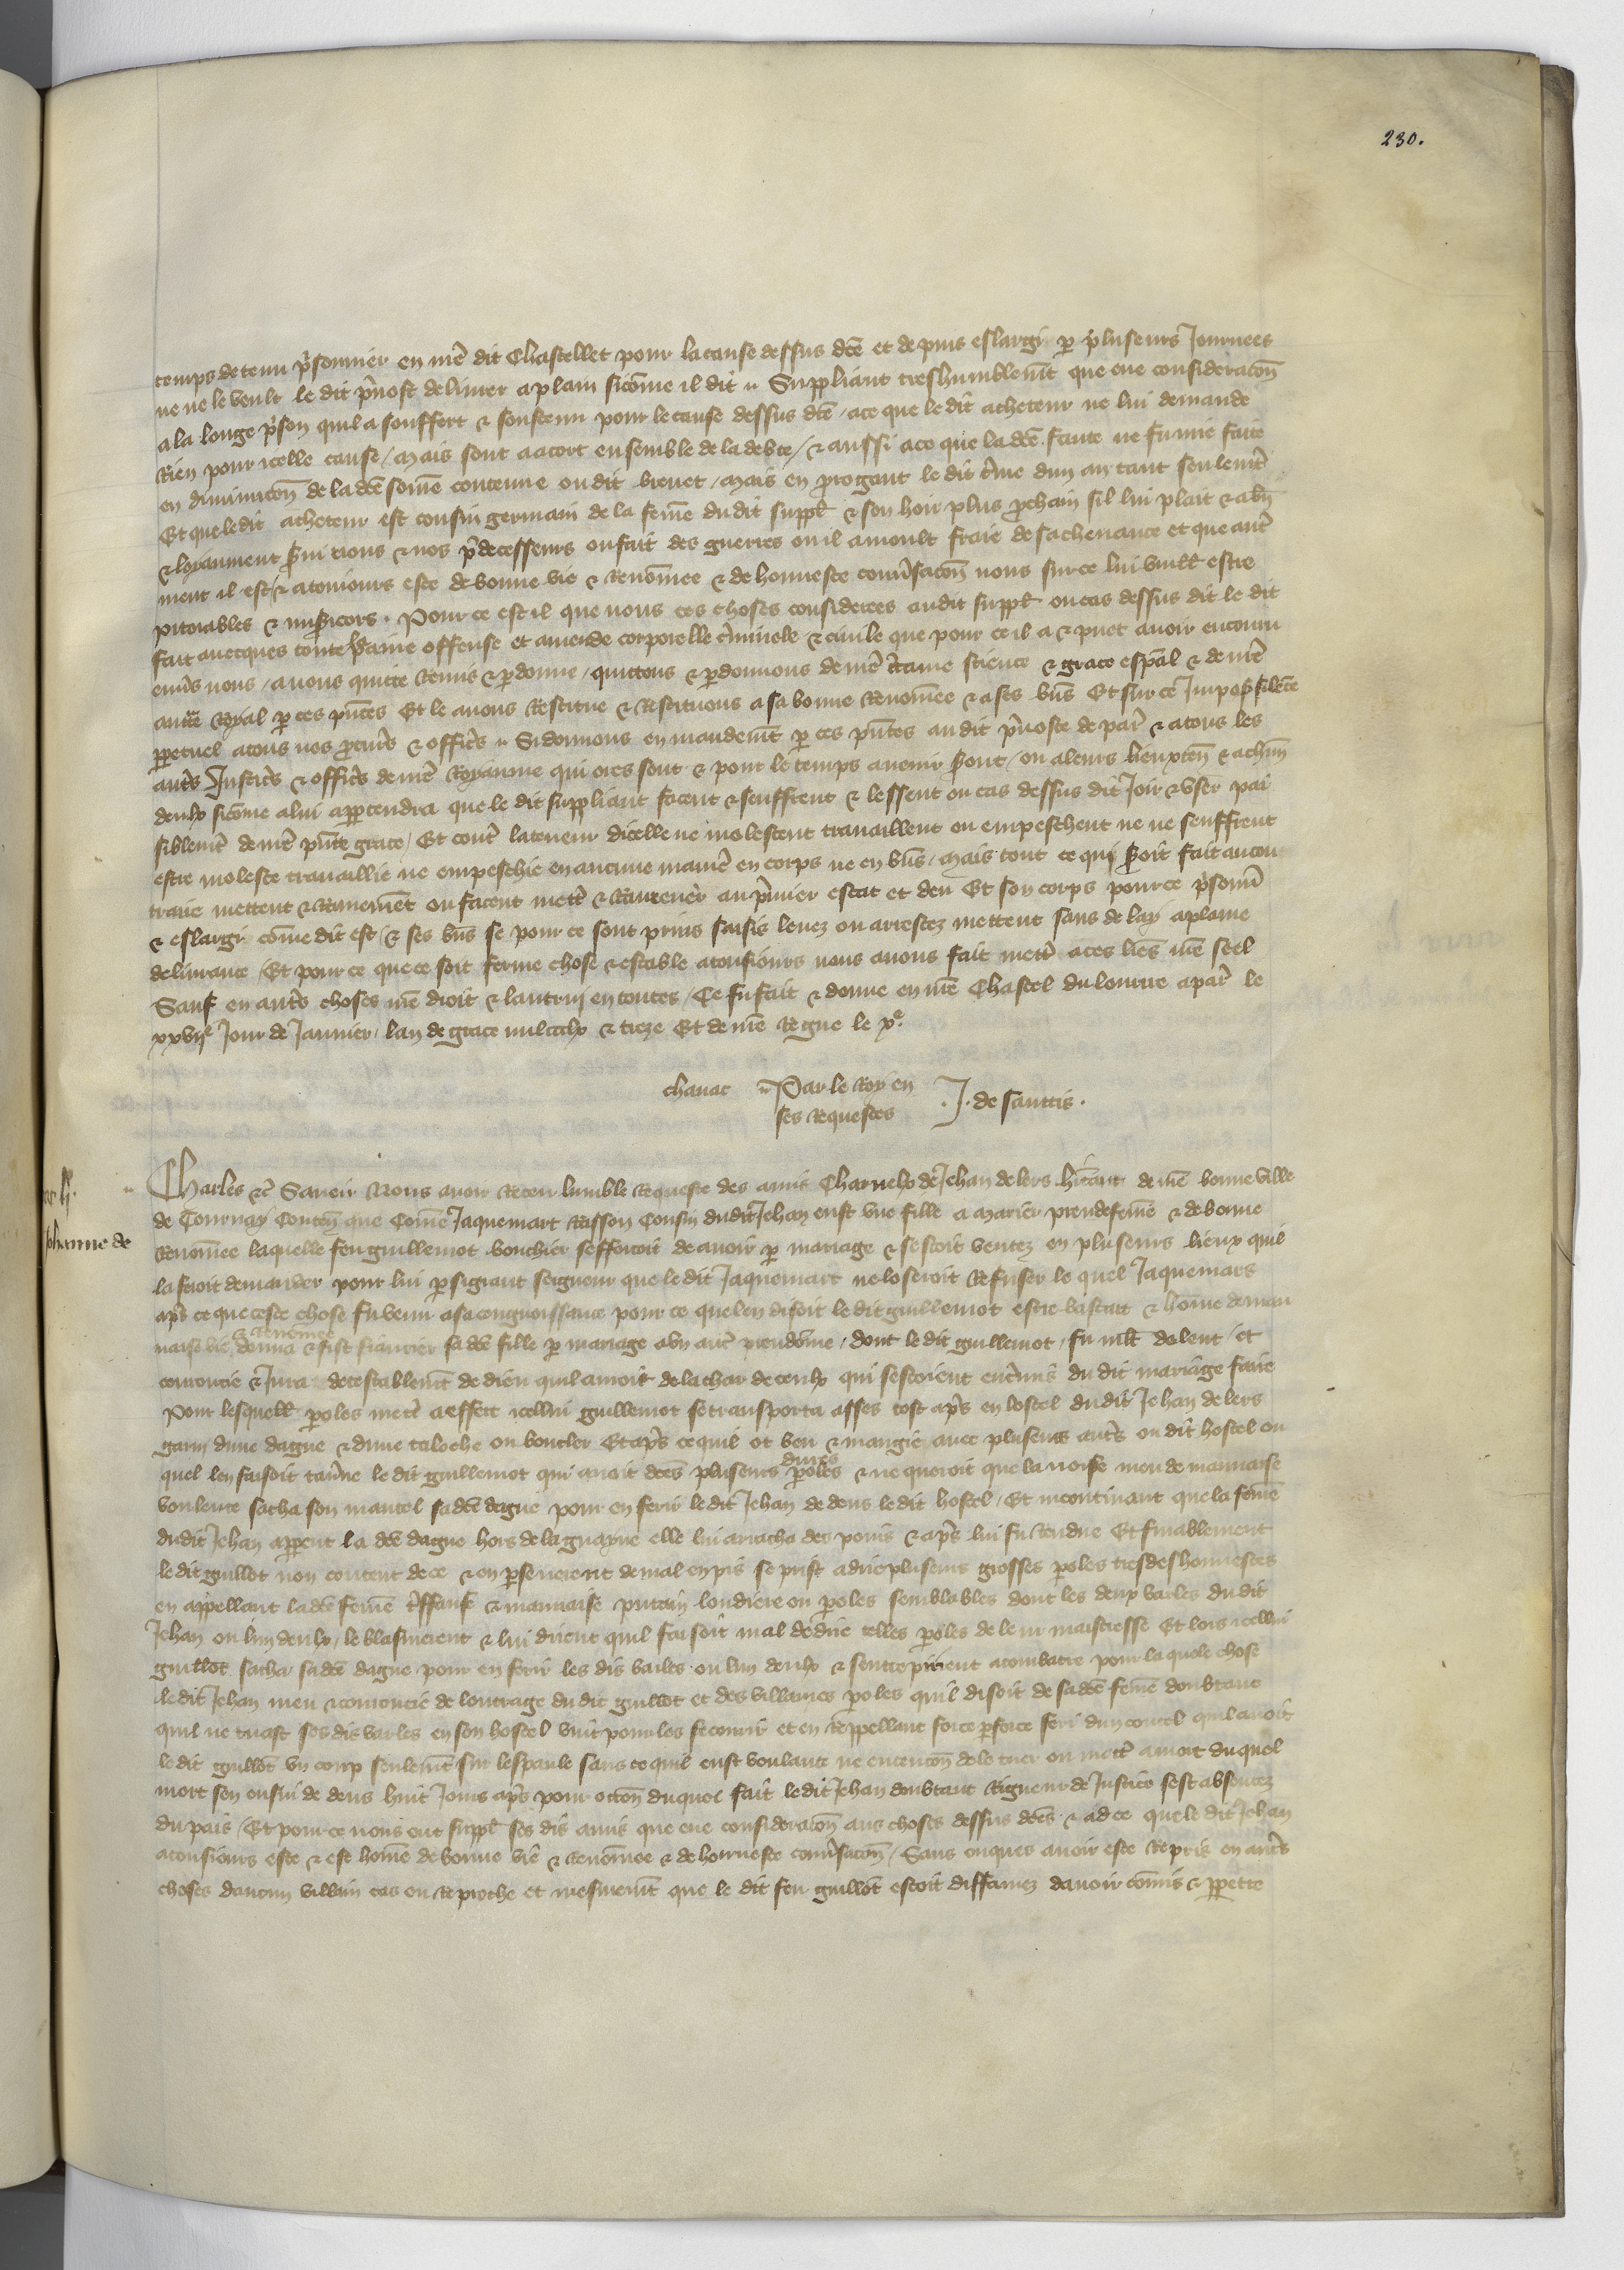 230.
temps detenu p̃sonnier en nr̃e dit Chastellet pour la cause dessus dc̃e et depuis eslargi ꝑ pluseurs Journees
ne ne le veult le dit p̃uost deliurer a plain sicõme il dit Suppliant treshumblemt̃ que eue consideracõn
a la longe p̃son quil a souffert & soustenu pour le cause dessus dc̃e / a ce que le dit acheteur ne lui demande
Rien pour icelle cause / Mais sont a acort ensemble de la debte / & aussi a ce que la dc̃e faute ne fu mie faite
en diminucõn de la dc̃e sõme contenue ou dit brevet / Mais en ꝓrogant le dit t̃me dun an tant seulemt̃
Et que le dit acheteur est cousin germain de la fem̃e du dit suppl̃ & son hoir plus ꝓchain sil lui plait &
& loyaument nous & nos p̃decesseurs ou fait des guerres ou il a moult fraie de sa chevance et que autr̃
ment il est / & a tousiours este de bonne vie & Renõmee & de honneste conũsacõn nous sur ce lui vueill̃ estre
pitoiables & Pour ce est il que nous ces choses considerees au dit suppl̃ ou cas dessus dit le dit
fait auecques toute paine offense et amende corporelle c̃minele & ciuile que pour ce il a & puet auoir encouru
enũs nous / auons quitte Remis & ꝑdonne / quittons & ꝑdonnons de nr̃e c̃taine science & grace esp̃al & de nr̃e
auct̃e Royal ꝑ ces pñtes Et le auons Restitue & Restituons a sa bonne Renõmee & a ses biẽs Et sur ce Imposons silẽce
ꝑpetuel a tous nos ꝓcur̃s & offic̃s Si donnons en mandemt̃ ꝑ ces pñtes au dit p̃uoste de par̃ & a tous les
autr̃s Justic̃s & offic̃s de nr̃e Royaume qui ores sont & pour le temps auenir s̃ont / ou a leurs lieuxteñ & a chũn
deulx sicõme a lui appartendra que le dit suppliant facent & seuffrent & lessent ou cas dessus dit Joir & vser pai
siblemt̃ de nr̃e pñte grace / Et contr̃ la teneur dicelle ne molestent trauaillent ou empeschent ne ne seuffrent
estre moleste trauaillie ne empeschie en aucune manier̃ en corps ne en biẽs / Mais tout ce qui s̃oit fait au con
traire mettent & Ramenẽt ou facent mettr̃ & Ramener au p̃mier estat et deu Et son corps pour ce p̃sonñ
& eslargi cõme dit est / & ses biẽs se pour ce sont prins saisis leuez ou arrestez mettent sans delay a plaine
deliurance / Et pour ce que ce soit ferme chose & estable a tousiours nous auons fait mettr̃ a ces lr̃es nr̃e seel
Sauf en autr̃s choses nr̃e droit & lautrui en toutes / Ce fu fait & donne en nr̃e Chastel du louure a par̃ le
xxvijᵉ Jour de Januier / lan de grace mil ccclx & treze Et de nr̃e Regne le xᵉ.
chanac Par le Roy en ses Requestes J. de sanctis.
Charles &c̃ Sauoir Nous auoir Receu lumble Requeste des amis Charnelx de Jehan de lers hĩtant de nr̃e bonne ville
de Tournay Conteñ que Cõme Jaquemart Rasson Cousin du dit Jehan eust vne fille a marier preudefem̃e & de bonne
Renõmee laquelle feu guillemot bouchier sefforcoit de auoir ꝑ mariage & sestoit ventez en pluseurs lieux quil
la feroit demander pour lui ꝑ si grant seigneur que le dit Jaquemart ne loseroit Refuser le quel Jaquemars
ap̃s ce que ceste chose fu venu a sa congnoissance pour ce que len disoit le dit guillemot estre bastart & hõme de mau
uaise vie & Renõmee donna & fist fiancier sa dc̃e fille ꝑ mariage a vn autr̃ preudõme / dont le dit guillemot fu mlt̃ dolent / et
couroucie & Jura detestablemt̃ de dieu quil auroit de la char de ceulx qui sestoient entr̃mis du dit mariage faire
Pour lesquell̃ ꝑoles mettr̃ a effect icellui guillemot se transporta asses tost ap̃s en lostel du dit Jehan de lers
garni dune dague & dune taloche ou boucler Et ap̃s ce quil ot beu & mangie auec pluseurs autr̃s ou dit hostel ou
quel len faisoit tau̾ne le dit guillemot qui auoit dc̃es pluseurs dures ꝑoles & ne queroit que la noise meu de mauuaise
voulente sacha son mantel sa dc̃e dague pour en ferir le dit Jehan de dens le dit hostel / Et incontinant que la fem̃e
du dit Jehan apperceut la dc̃e dague hors de la guayne elle lui arracha des poins & ap̃s lui fu Rendue Et finablement
le dit guillot non content de ce & en ꝑseuerent de mal en pis se prist a dire pluseurs grosses ꝑoles tresdeshonnestes
en appellant la dc̃e fem̃e & mauuaise putain loudiere ou ꝑoles semblables dont les deux varles du dit
Jehan ou lun deulx / le blasmerent & lui dirent quil faisoit mal de dire telles ꝑoles de leur maistresse Et lors icellui
guillot sacha sa dc̃e dague pour en ferir les dis varles ou lun deulx & sentreprirent a combatre pour la quele chose
le dit Jehan meu & courroucie de loutrage du dit guillot et des villaines ꝑoles quil disoit de sa dc̃e fem̃e doubtant
quil ne tuast ses dis varles en son hostel vint pour les secourir et en Reppellant force ꝑ force feri dun coutel quil auoit
le dit guillot vn coup seulemt̃ sur lespaule sans ce quil eust voulante ne entencõn de le tuer ou mettr̃ a mort duquel
mort sen ensui de dens huit Jours ap̃s pour occõn duquel fait le dit Jehan doubtant Rigueur de Justice sest absentez
du pais / Et pour ce nous ont suppl̃ ses dis amis que eue consideracõn aus choses dessus dc̃es & ad ce que le dit Jehan
a tousiours este & est hõme de bonne vie & Renõmee & de honneste conũsacõn / Sans onques auoir este Repris en autr̃s
choses daucun villain cas ou Reproche et mesmemt̃ que le dit feu guillot estoit diffamez dauoir cõmis & ꝑpetre